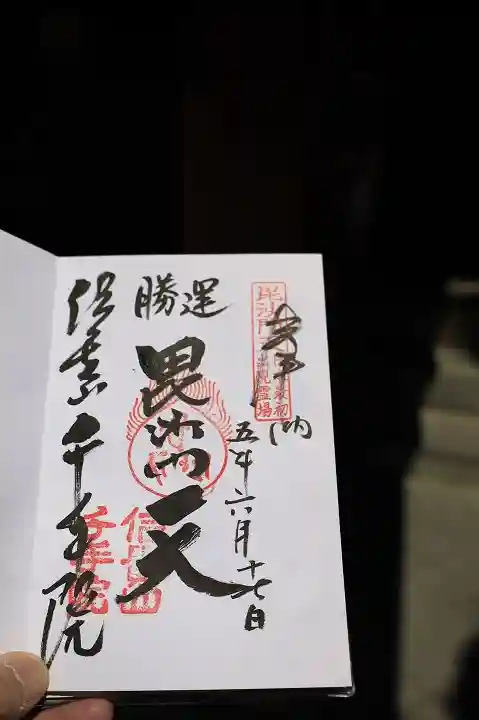 奉納
五年六月十七日
毘沙門天
日本最初
出現霊場
勝運
毘沙門天
信貴山
千手院
信貴山千手院